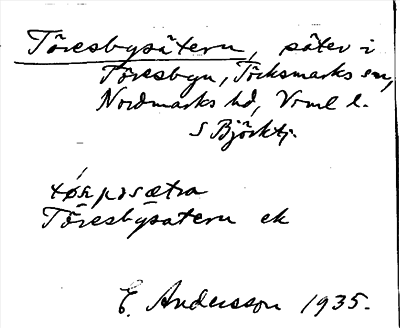 Töresbysätern, säter i
Töresbyn, Töcksmarks sn,
Nordmarks hd, Vrml l.
S Björktj.
Töresbysätern ek
E. Andersson 1935.